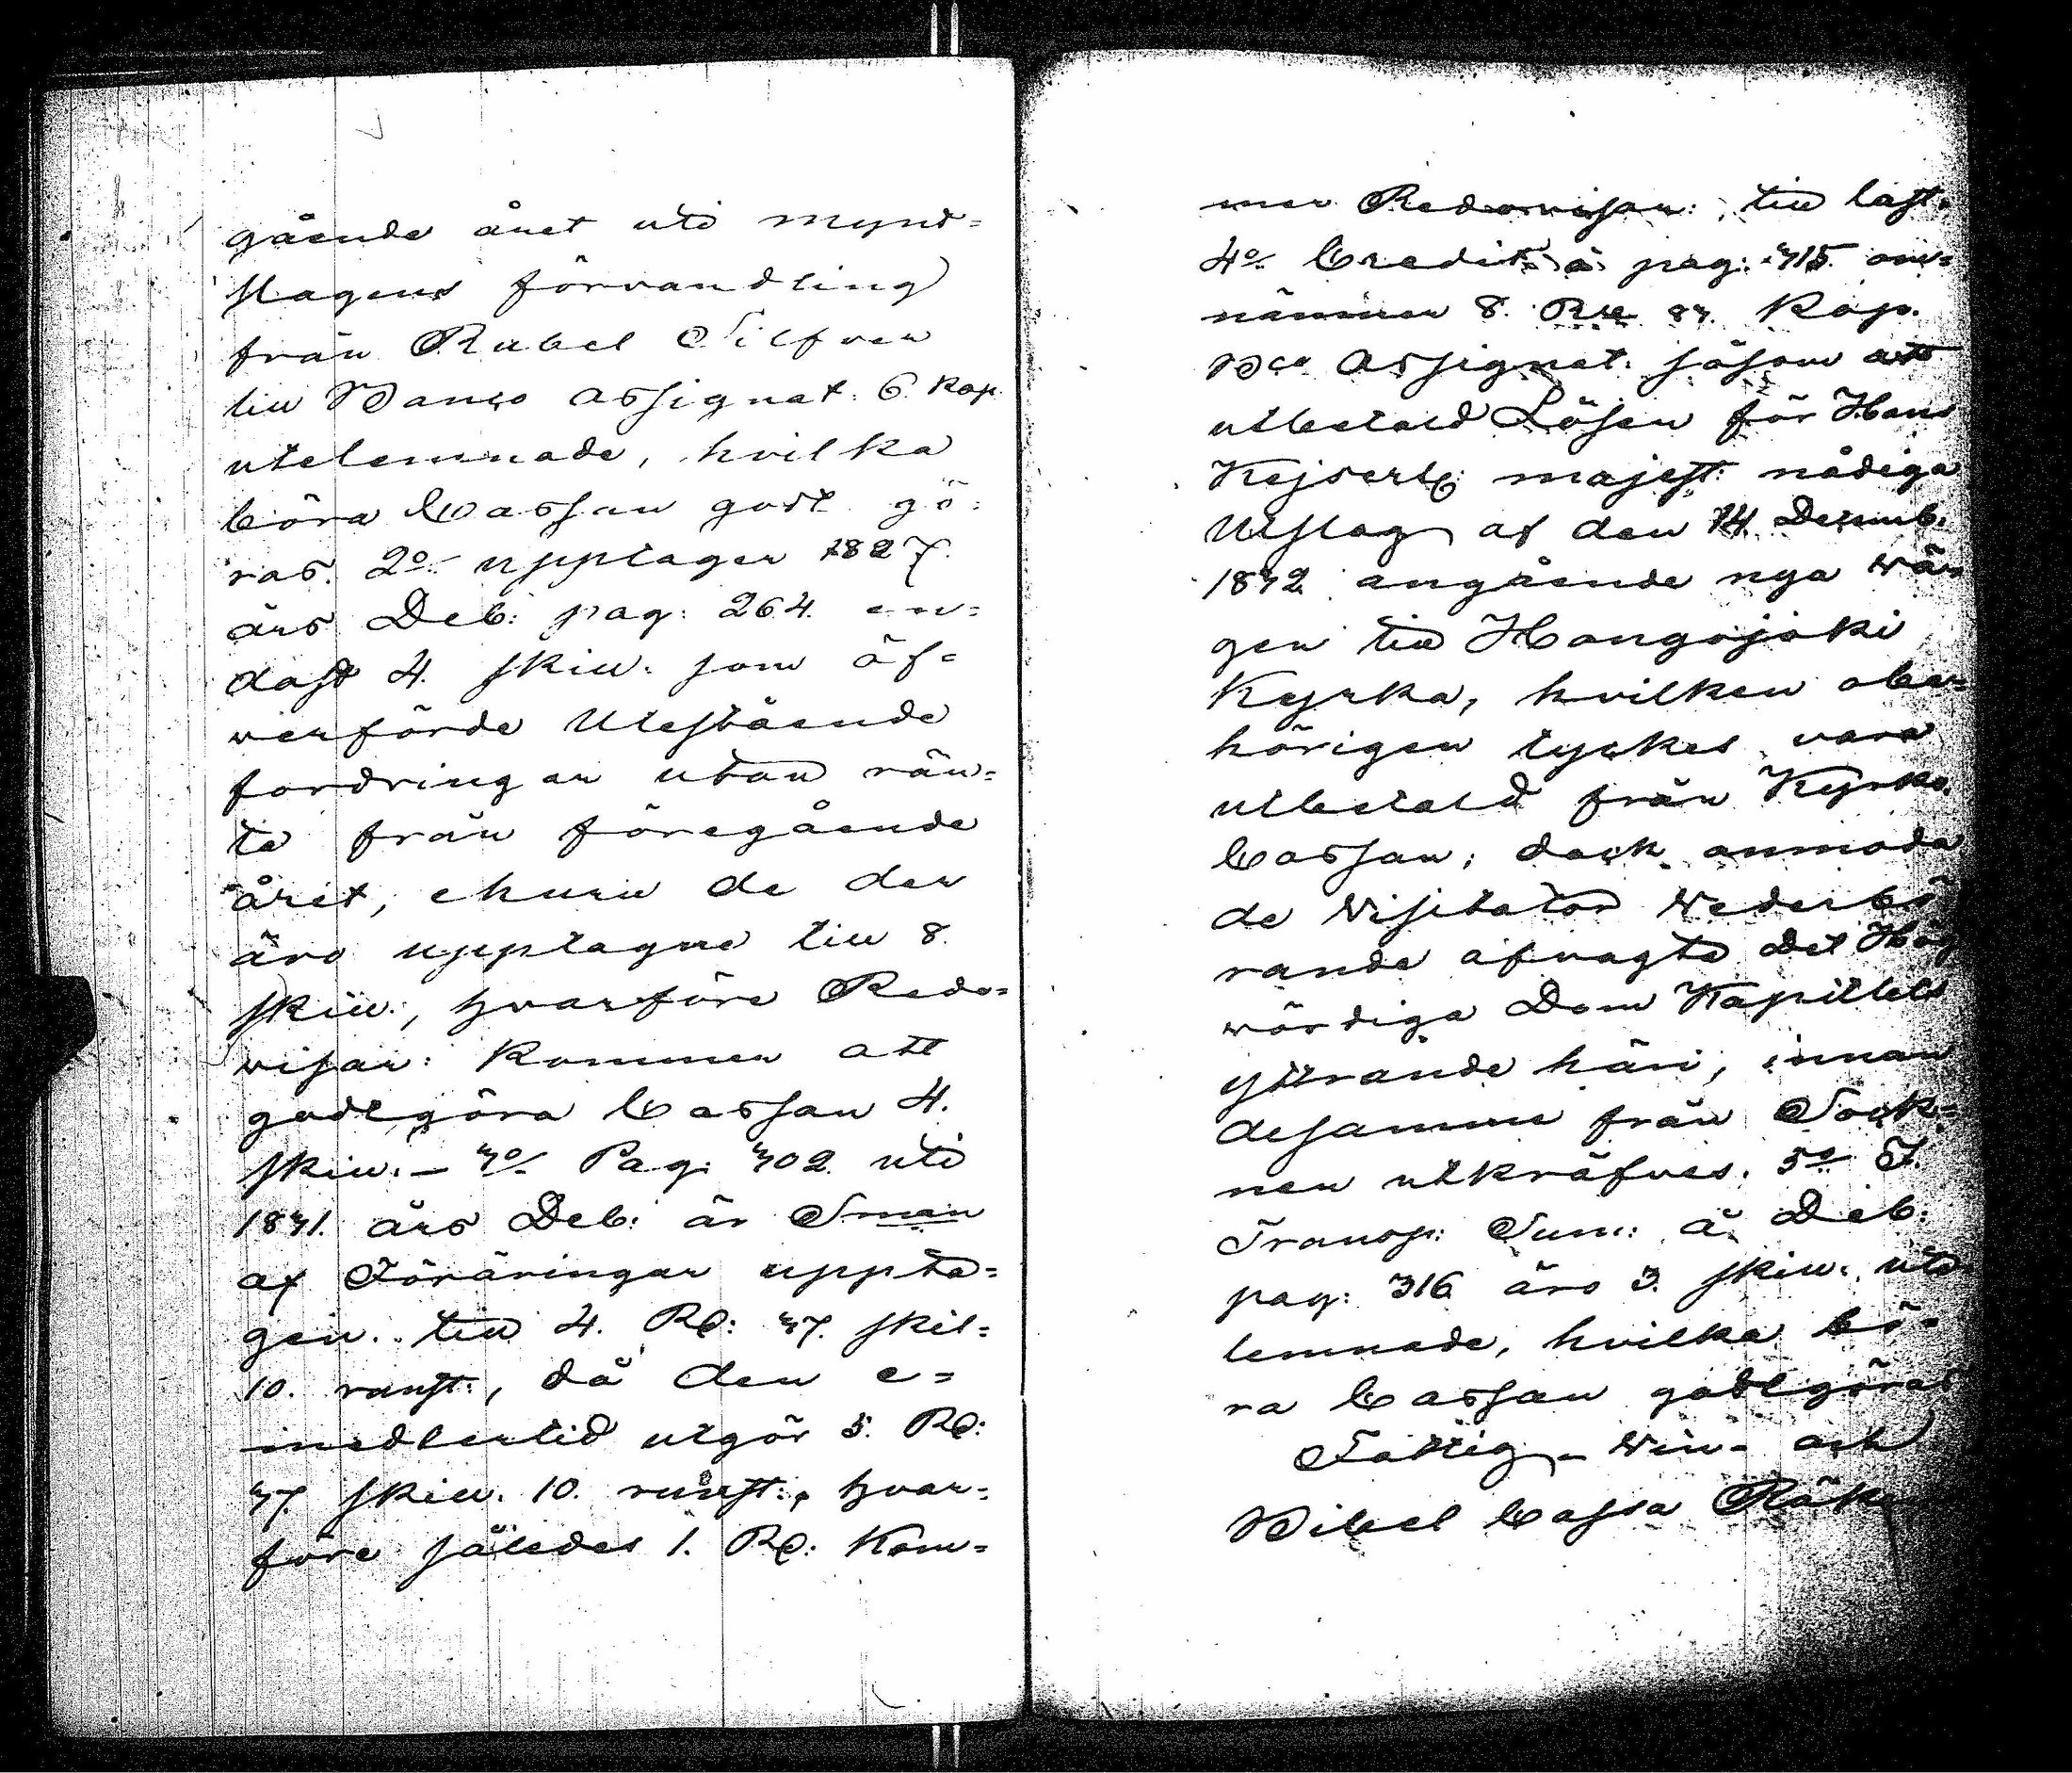 gående året uti mynt=
slagens förvandling
från Rubel Silfver
till Banco Assignat. 6. Kop.
utelemnade, hvilka
böra Cassan godt gö=
ras. 2o upptager 1827
års Deb: pag: 264. en=
dast 4. skill: som öf=
verförde Utestående
fordringar utan rän=
ta från föregående
året, ehuru de der
äro upptagne till 8.
skill:, hvarföre Redo=
visar: kommer att
godtgöra Cassan 4.
skill. – 3o Pag: 302 uti
1831. års Deb: är Sman
af Föräringar uppta=
gen till 4. Rd: 37. skil=
10. runst:, då den e=
medlertid utgör 5. Rd:
37. skill. 10. runst:, hvar=
före således 1. Rd: Kom=
mer Redovisar: till last.
4o Credit: à pag: 315. om=
nämner 8. Rbl 83. Kop.
Bco Assignat. såsom
utbetald Lösen för Hans
Kejserl: Majest: nådiga
Utslag af den 14. Decemb:
1832 angående nya vä=
gen till Haugojoki
Kyrka, hvilken obe=
hörigen tyckes vara
utbetald från Kyrko
Cassan; dock anmoda
de Visitator Vederbö
rande afvagta Det Hög
vördiga Dom Kapitlets
yttrande häri, innan
desamme från Sock=
nen utkräfves. 5o I
Transp: Sum: à Deb:
pag: 316 äro 3. skill. ute
lemnade, hvilka bö=
ra Cassan godtgöras
Fattig- Vin- och
Bibel Cassa Räken